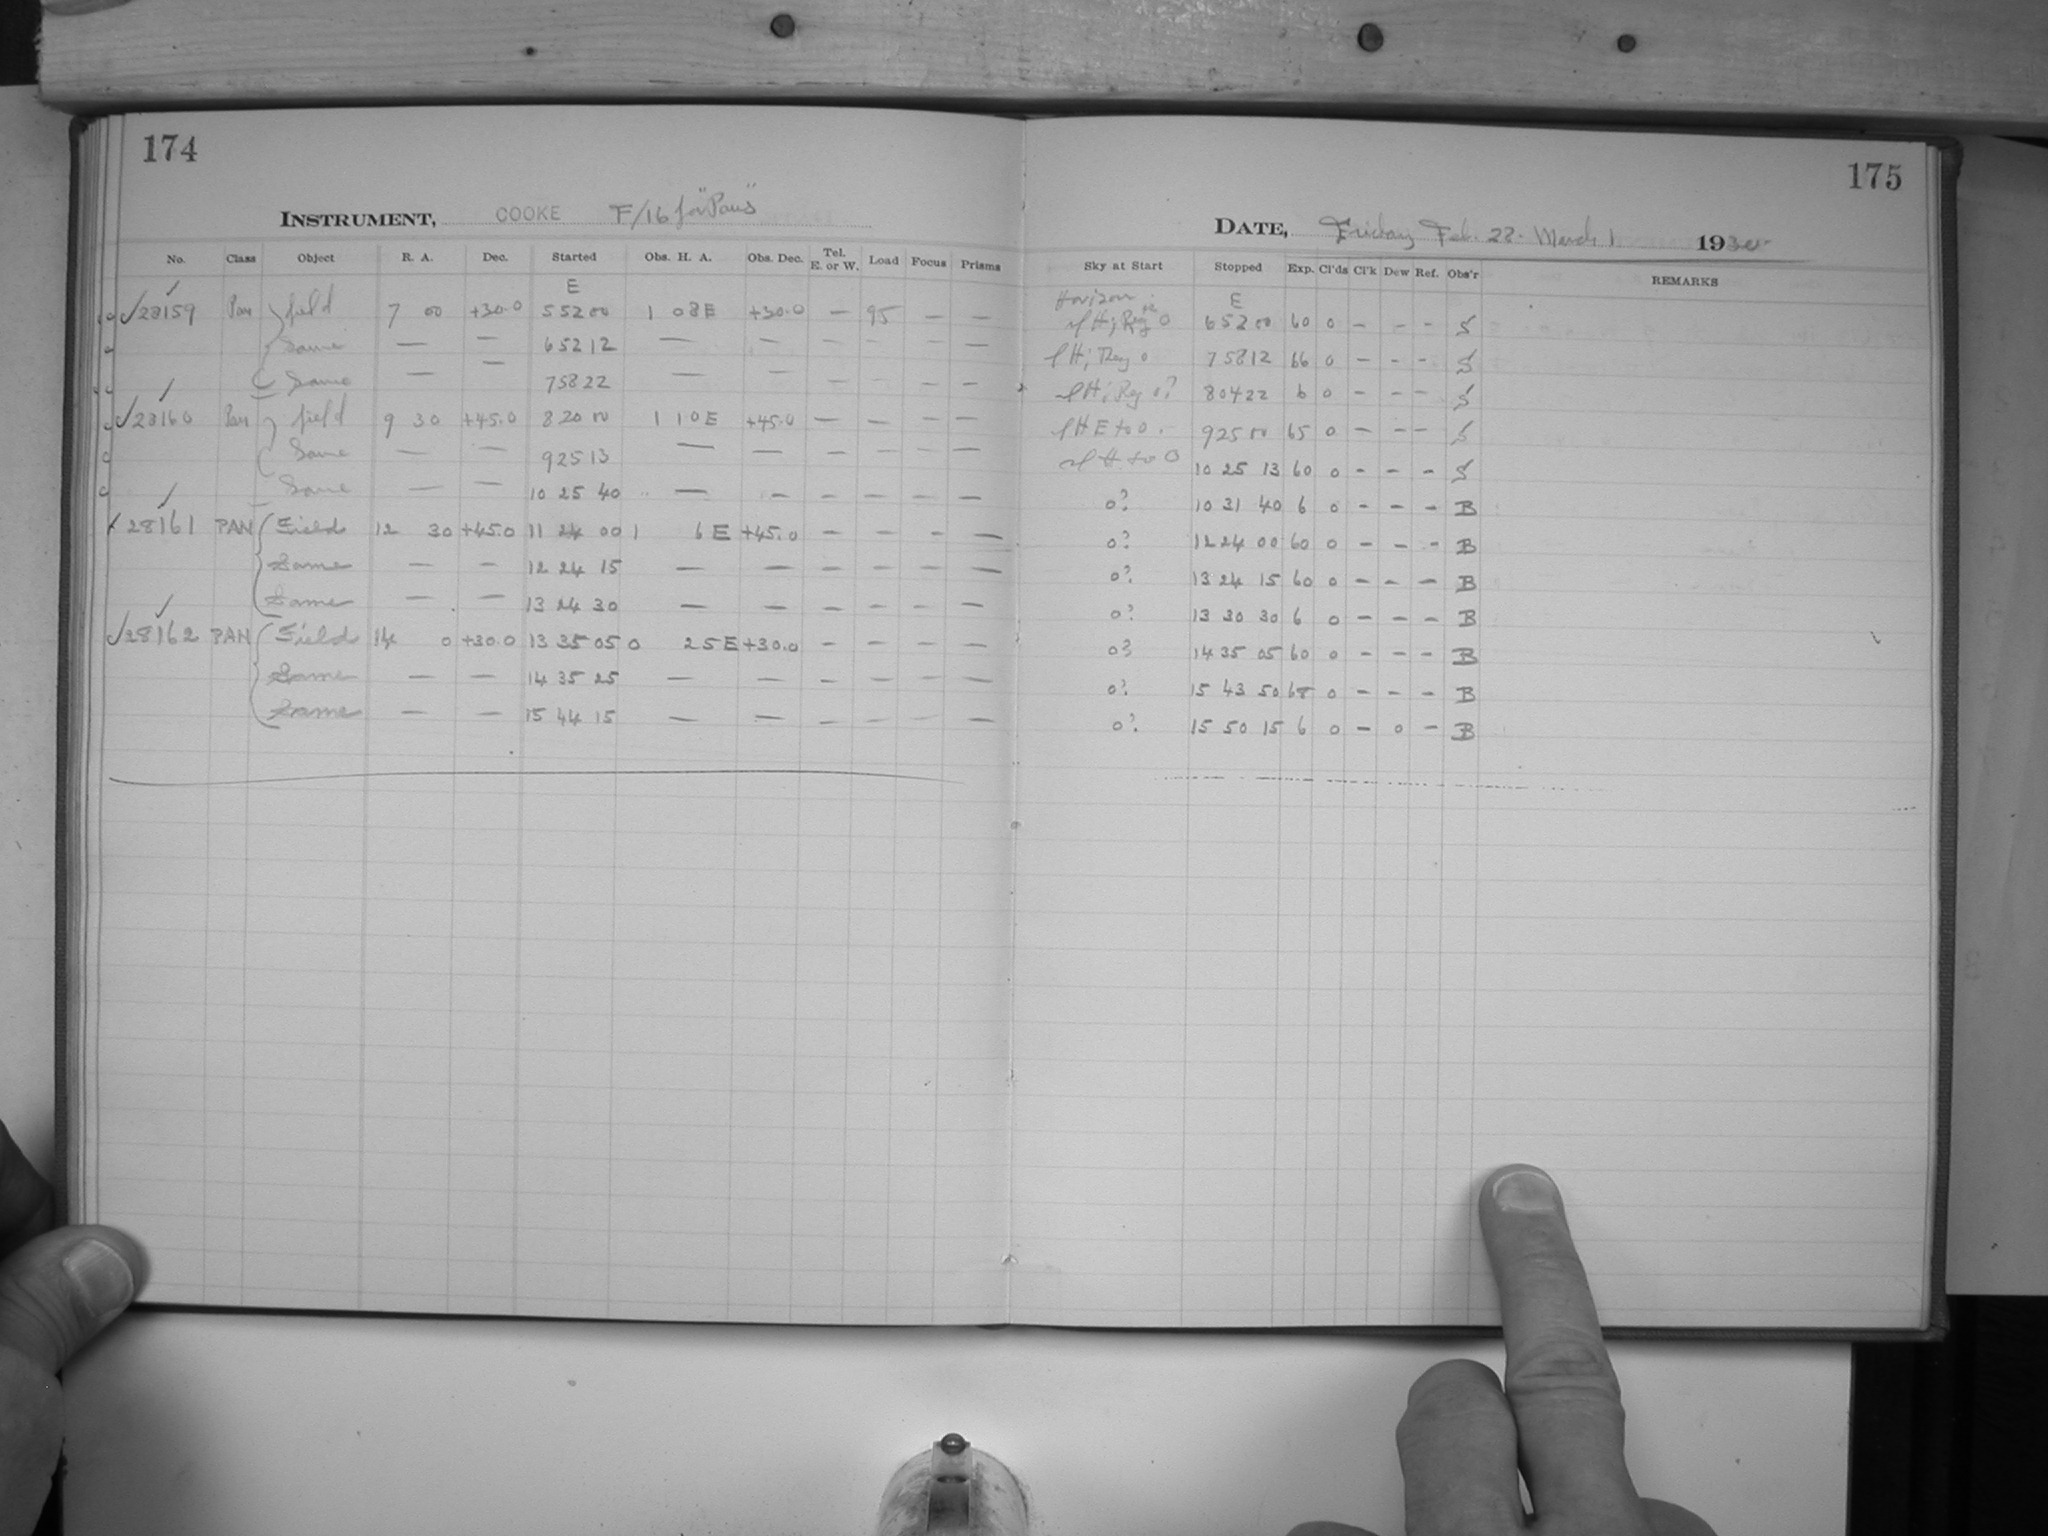 174
INSTRUMENT, COOKE F/16 for "Pans"
No. Class Object R. A. Dec. Started Obs. H. A. Obs. Dec. Tel. E. or W. Load Focus Prisms
E
✓28159 Pan field 7 00 +30.0 5 52 00 1 08 E +30.0 — 95 — —
Same — — 6 52 12 — — — — — —
Same — — 7 58 22 — — — — — —
✓28160 Pan field 9 30 +45.0 8 20 00 1 10 E +45.0 — — — —
Same — — 9 25 13 — — — — — —
Same — — 10 25 40 — — — — — —
✓28161 PAN Field 12 30 +45.0 11 24 00 1 6 E +45.0 — — — —
Same — — 12 24 15 — — — — — —
Same — — 13 24 30 — — — — — —
✓28162 PAN Field 14 0 +30.0 13 35 05 0 25 E +30.0 — — — —
Same — — 14 35 25 — — — — — —
Same — — 15 44 15 — — — — — —
175
DATE, Friday Feb. 28 - March 1 19
Sky at Start Stopped Exp. Cl'ds Cl'k Dew Ref. Obs'r REMARKS
Horizon E
6 52 00 60 0 - - - S
7 58 12 66 0 - - - S
8 04 22 6 0 - - - S
9 25 00 65 0 - - - S
10 25 13 60 0 - - - S
0? 10 31 40 6 0 - - - B
0? 12 24 00 60 0 - - - B
0? 13 24 15 60 0 - - - B
0? 13 30 30 6 0 - - - B
0? 14 35 05 60 0 - - - B
0? 15 43 50 68 0 - - - B
0? 15 50 15 6 0 - 0 - B